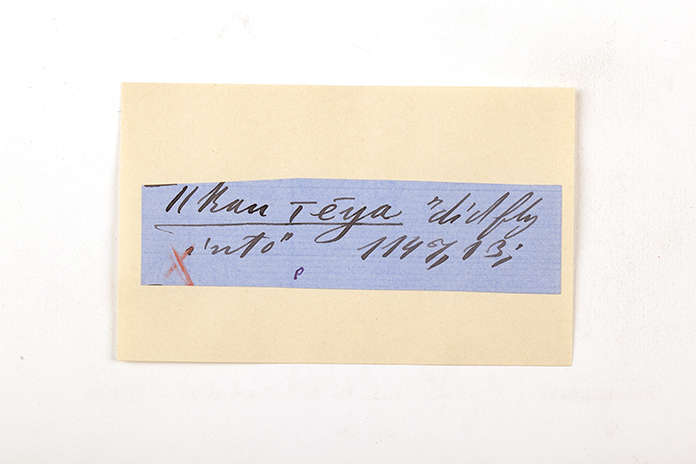 //kan tēya "did fly
into" 114,13;
P